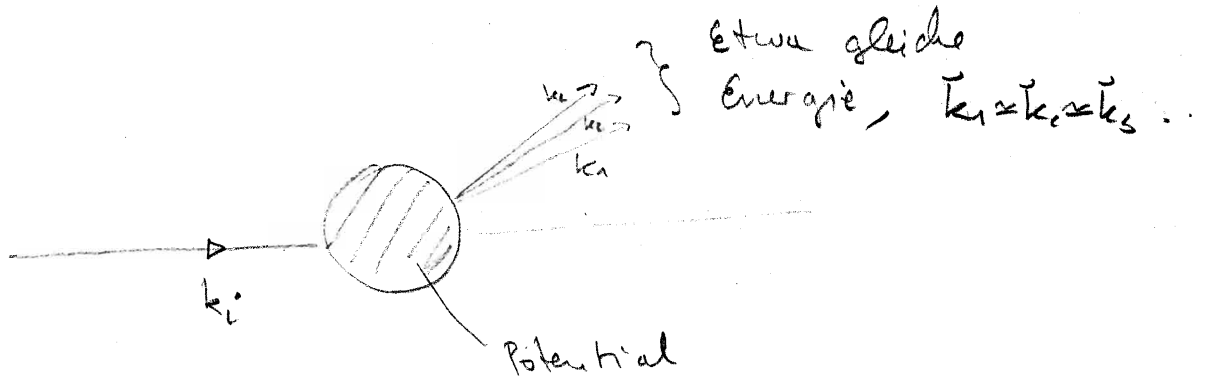 Etwa gleiche
Energie, k₁ ≈ k₂ ≈ k₃ ..
k₂
k₁
kᵢ
Potential